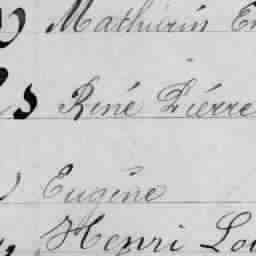 Mathurin
René Pierre
Eugène
Henri